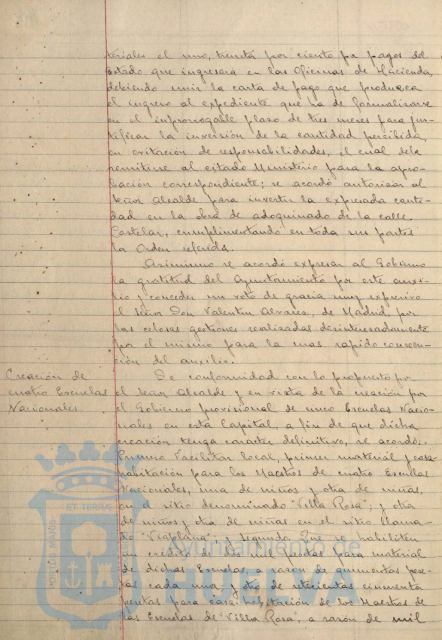 teriales el uno, treinta por ciento pr pagos del
Estado que ingresara en las Oficinas de Hacienda,
debiendo unir la carta de pago que produzca
el ingreso al expediente que ha de formalizarse
en el improrrogable plazo de tres meses para jus-
tificar la inversión de la cantidad percibida,
en evitacion de responsabilidades, el cual debe
remitirse al citado Ministerio para la apro-
bacion correspondiente; se acordó autorizar al
Señor Alcalde para invertir la expresada canti-
dad en la obra de adoquinado de la calle
Castelar, cumplimentando en toda sus partes
la Orden referida.
Asimismo se acordó expresar al Gobierno
la gratitud del Ayuntamiento por este auxi-
lio y conceder un voto de gracia muy expresivo
al Señor Don Valentin Alvarez, de Madrid por
las celosas gestiones realizadas desinteresadamente
por el mismo para la mas rapida conce-
sión del auxilio.
Creación de
cuatro Escuelas
Nacionales
De conformidad con lo propuesto por
el Señor Alcalde y en vista de la creación por
el Gobierno provisional de cinco Escuelas Nacio-
nales en esta Capital, a fin de que dicha
creacion tenga caracter definitivo, se acordó:
Primero facilitar local, primer material y casa
habitación para los Maestros de cuatro Escuelas
Nacionales, una de niños y otra de niñas,
en el sitio denominado "Villa Rosa"; y otra
de niños y otra de niñas en el sitio llama-
do "Viaplana"; y segundo que se habiliten
un crédito de dos mil pesetas para material
de dichas Escuelas, a razón de quinientas pese-
tas cada una, y otro de setecientas cincuenta
pesetas para casa-habitación de los Maestros de
las Escuelas de "Villa Rosa", a razón de mil
PORTUS MARIS
ET TERRE CUSTODIA
Ayuntamiento de
HUELVA